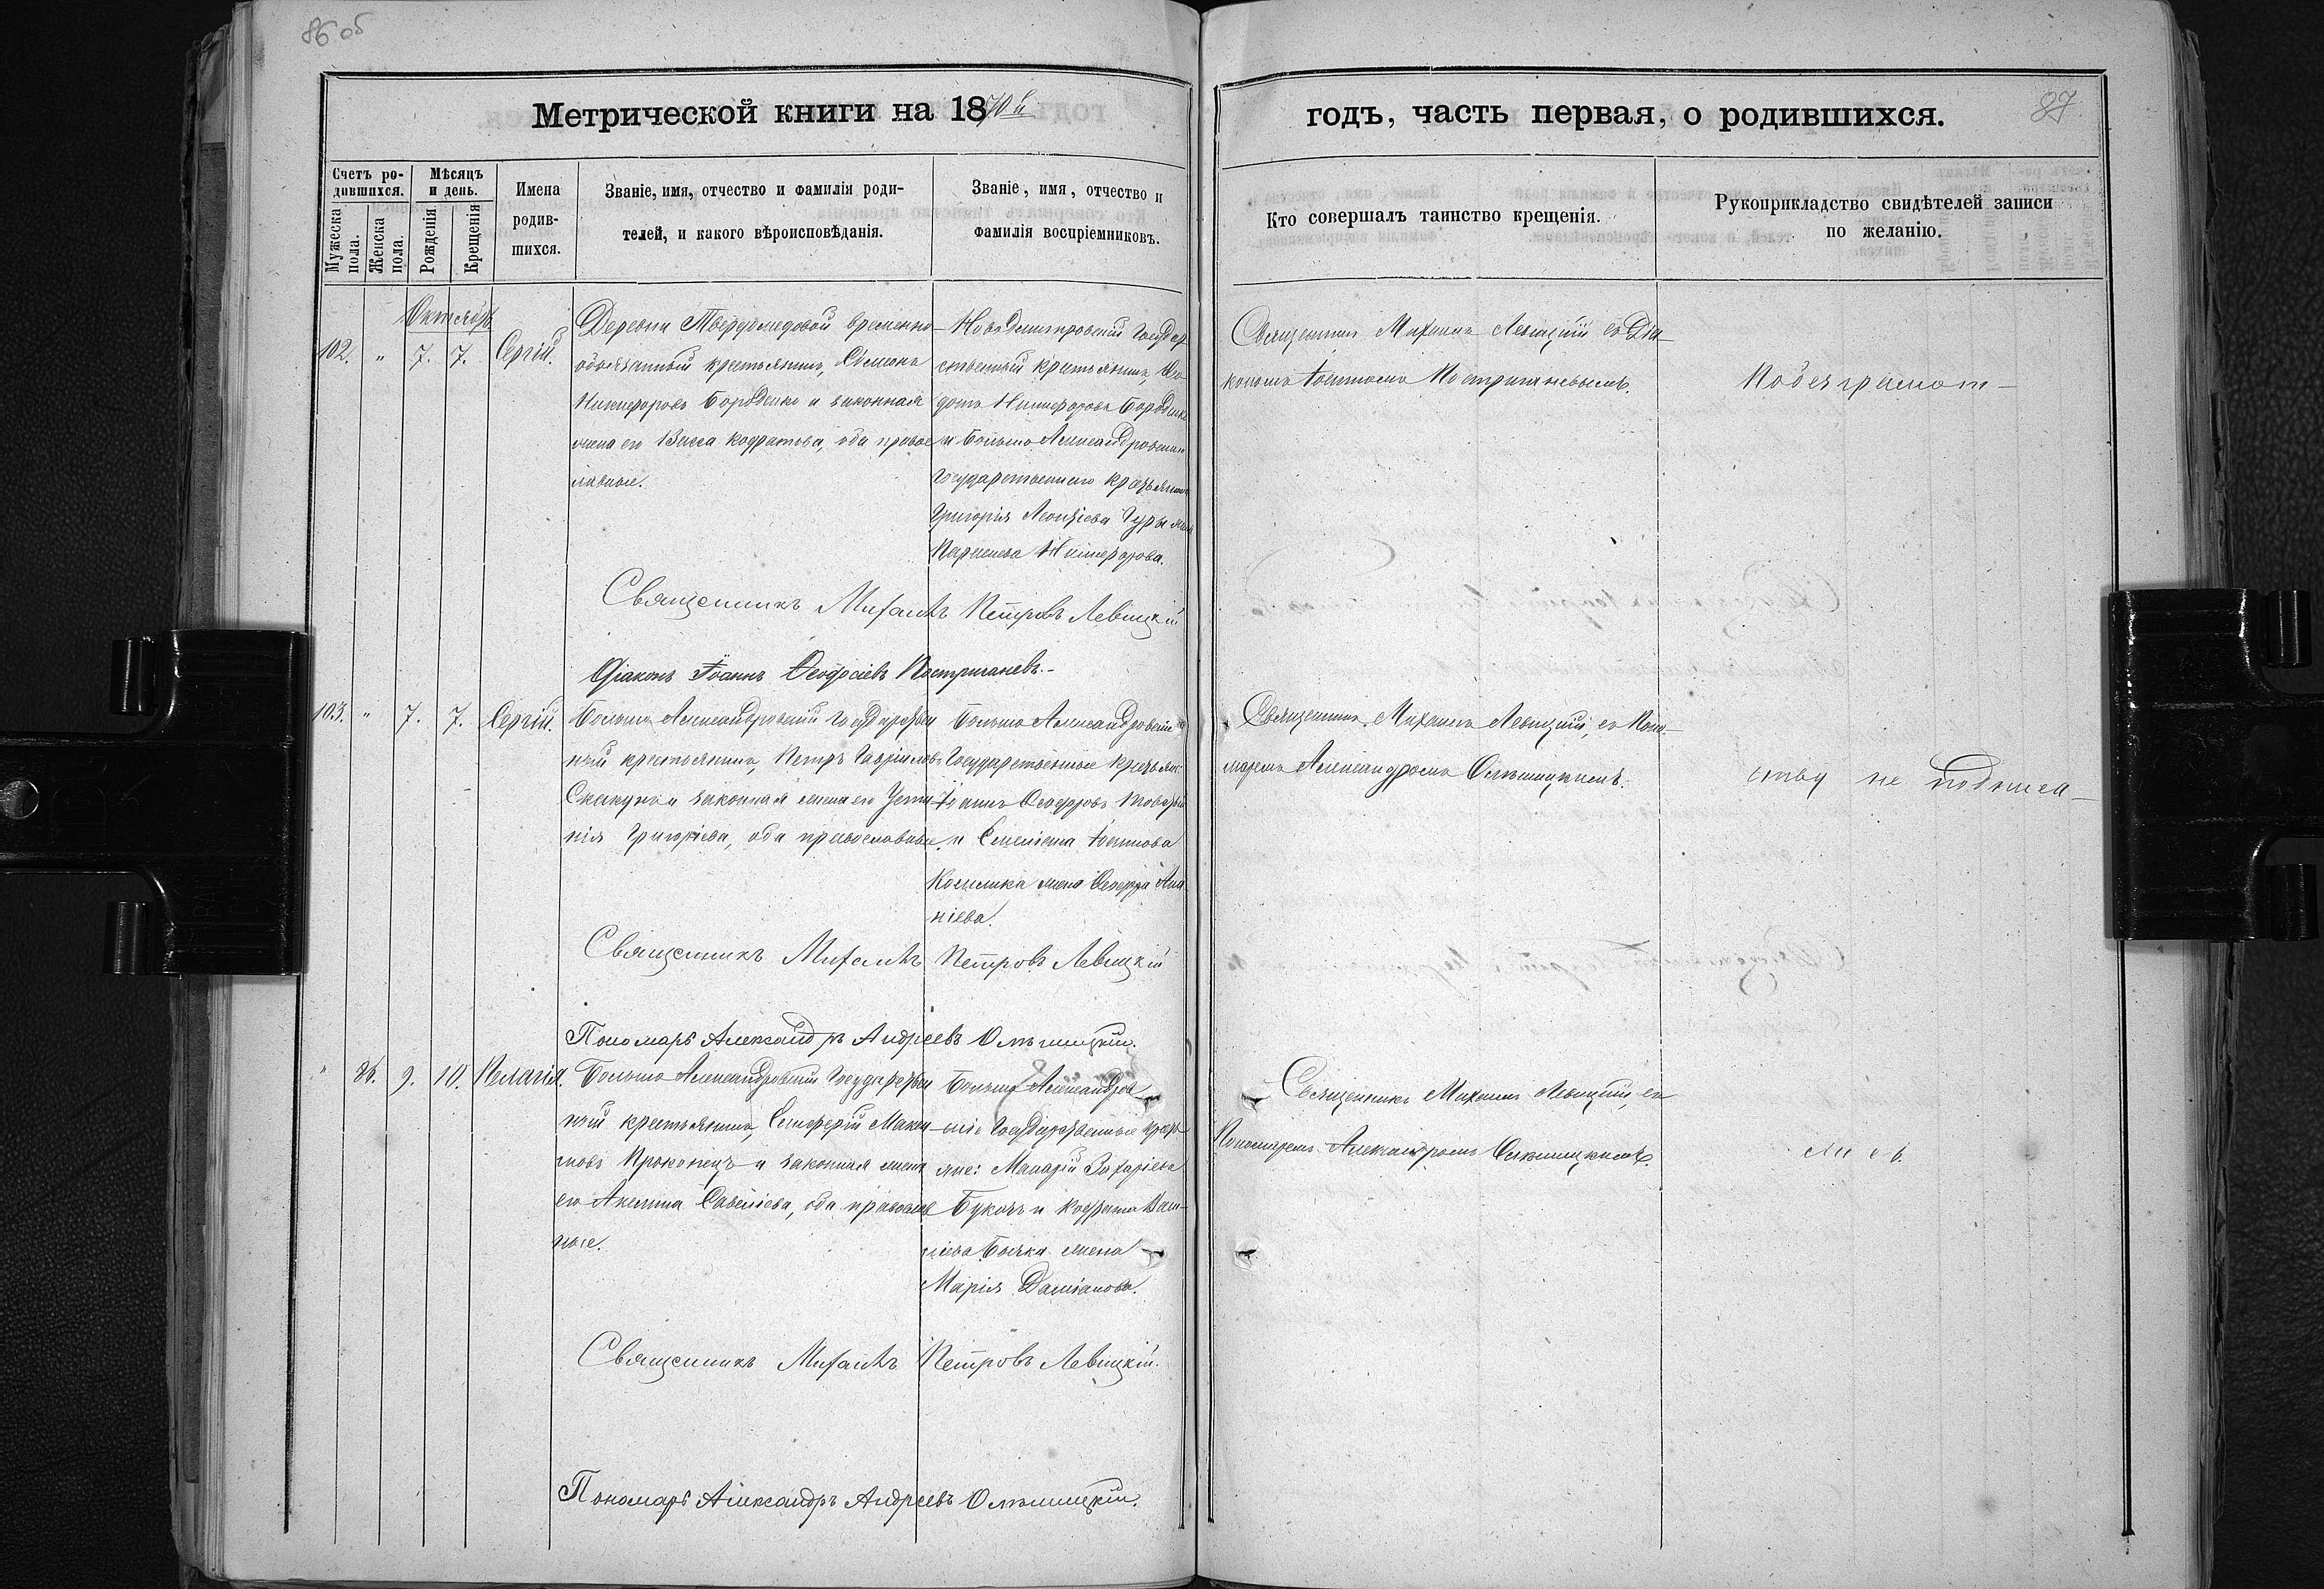 86 об
Метрической книги на 1870й
годъ, часть первая, о родившихся.
87
Счетъ родившихся.
Мужеска пола.
Женска пола.
Мѣсяцъ и день.
Рожденія
Крещенія
Имена родив-
шихся.
Званіе, имя, отчество и фамилія роди-
телей, и какого вѣроисповѣданія.
Званіе, имя, отчество и
фамилія воспріемниковъ.
Кто совершалъ таинство крещенія.
Рукоприкладство свидѣтелей записи
по желанію.
Октябрь
102. " 7. 7. Сергій.
Деревни Твердомедовой временно-
обязанный крестьянинъ, Симеонъ
Никифоровъ Бороденко и законная
жена его Васса Кодратова, оба правос
лавные.
Новодмитровскій Государ
ственный крестьянинъ,
Никифоровъ Бороденко
и Больше Александровскаго
Государственнаго крестьянина
Григорія Леонтіева Гуры жена
Параскева Никифорова.
Священникъ Михаилъ Левицкій съ Діа-
кономъ Іоанномъ Костриганевымъ.
По безграмот-
Священникъ Михаилъ Петровъ Левицкій
Діаконъ Іоаннъ Ѳеодосіевъ Костриганевъ.-
103. " 7. 7. Сергій.
Больше Александровскій Государствен
ный крестьянинъ, Петръ Гавріиловъ
Скакунъ и законная жена его Усти
нія Григоріева, оба православные.
Больше Александровскіе
Государственные крестьян:
Іоаннъ Ѳеодоровъ
и Іоаннова
жена Ана
ніева.
Священникъ Михаилъ Левицкій, съ Поно-
маремъ Александромъ Ольшицкимъ.
ству не подписа-
Священникъ Михаилъ Петровъ Левицкій
Пономарь Александръ Андреевъ Ольшицкій.
" 86. 9. 10. Пелагія.
Больше Александровскій Государствен
ный крестьянинъ, Макси
мовъ Прокопецъ и законная жена
его Акилина Савеліева, оба православ
ные.
Больше Александров
скіе Государственные крестья
яне: Макарій Захаріевъ
Букачъ и Кодрата Васи-
ліева жена
Марія Даміанова.
Священникъ Михаилъ Левицкій, съ
Пономаремъ Александромъ Ольшицкимъ.
лись.
Священникъ Михаилъ Петровъ Левицкій.
Пономарь Александръ Андреевъ Ольшицкій.